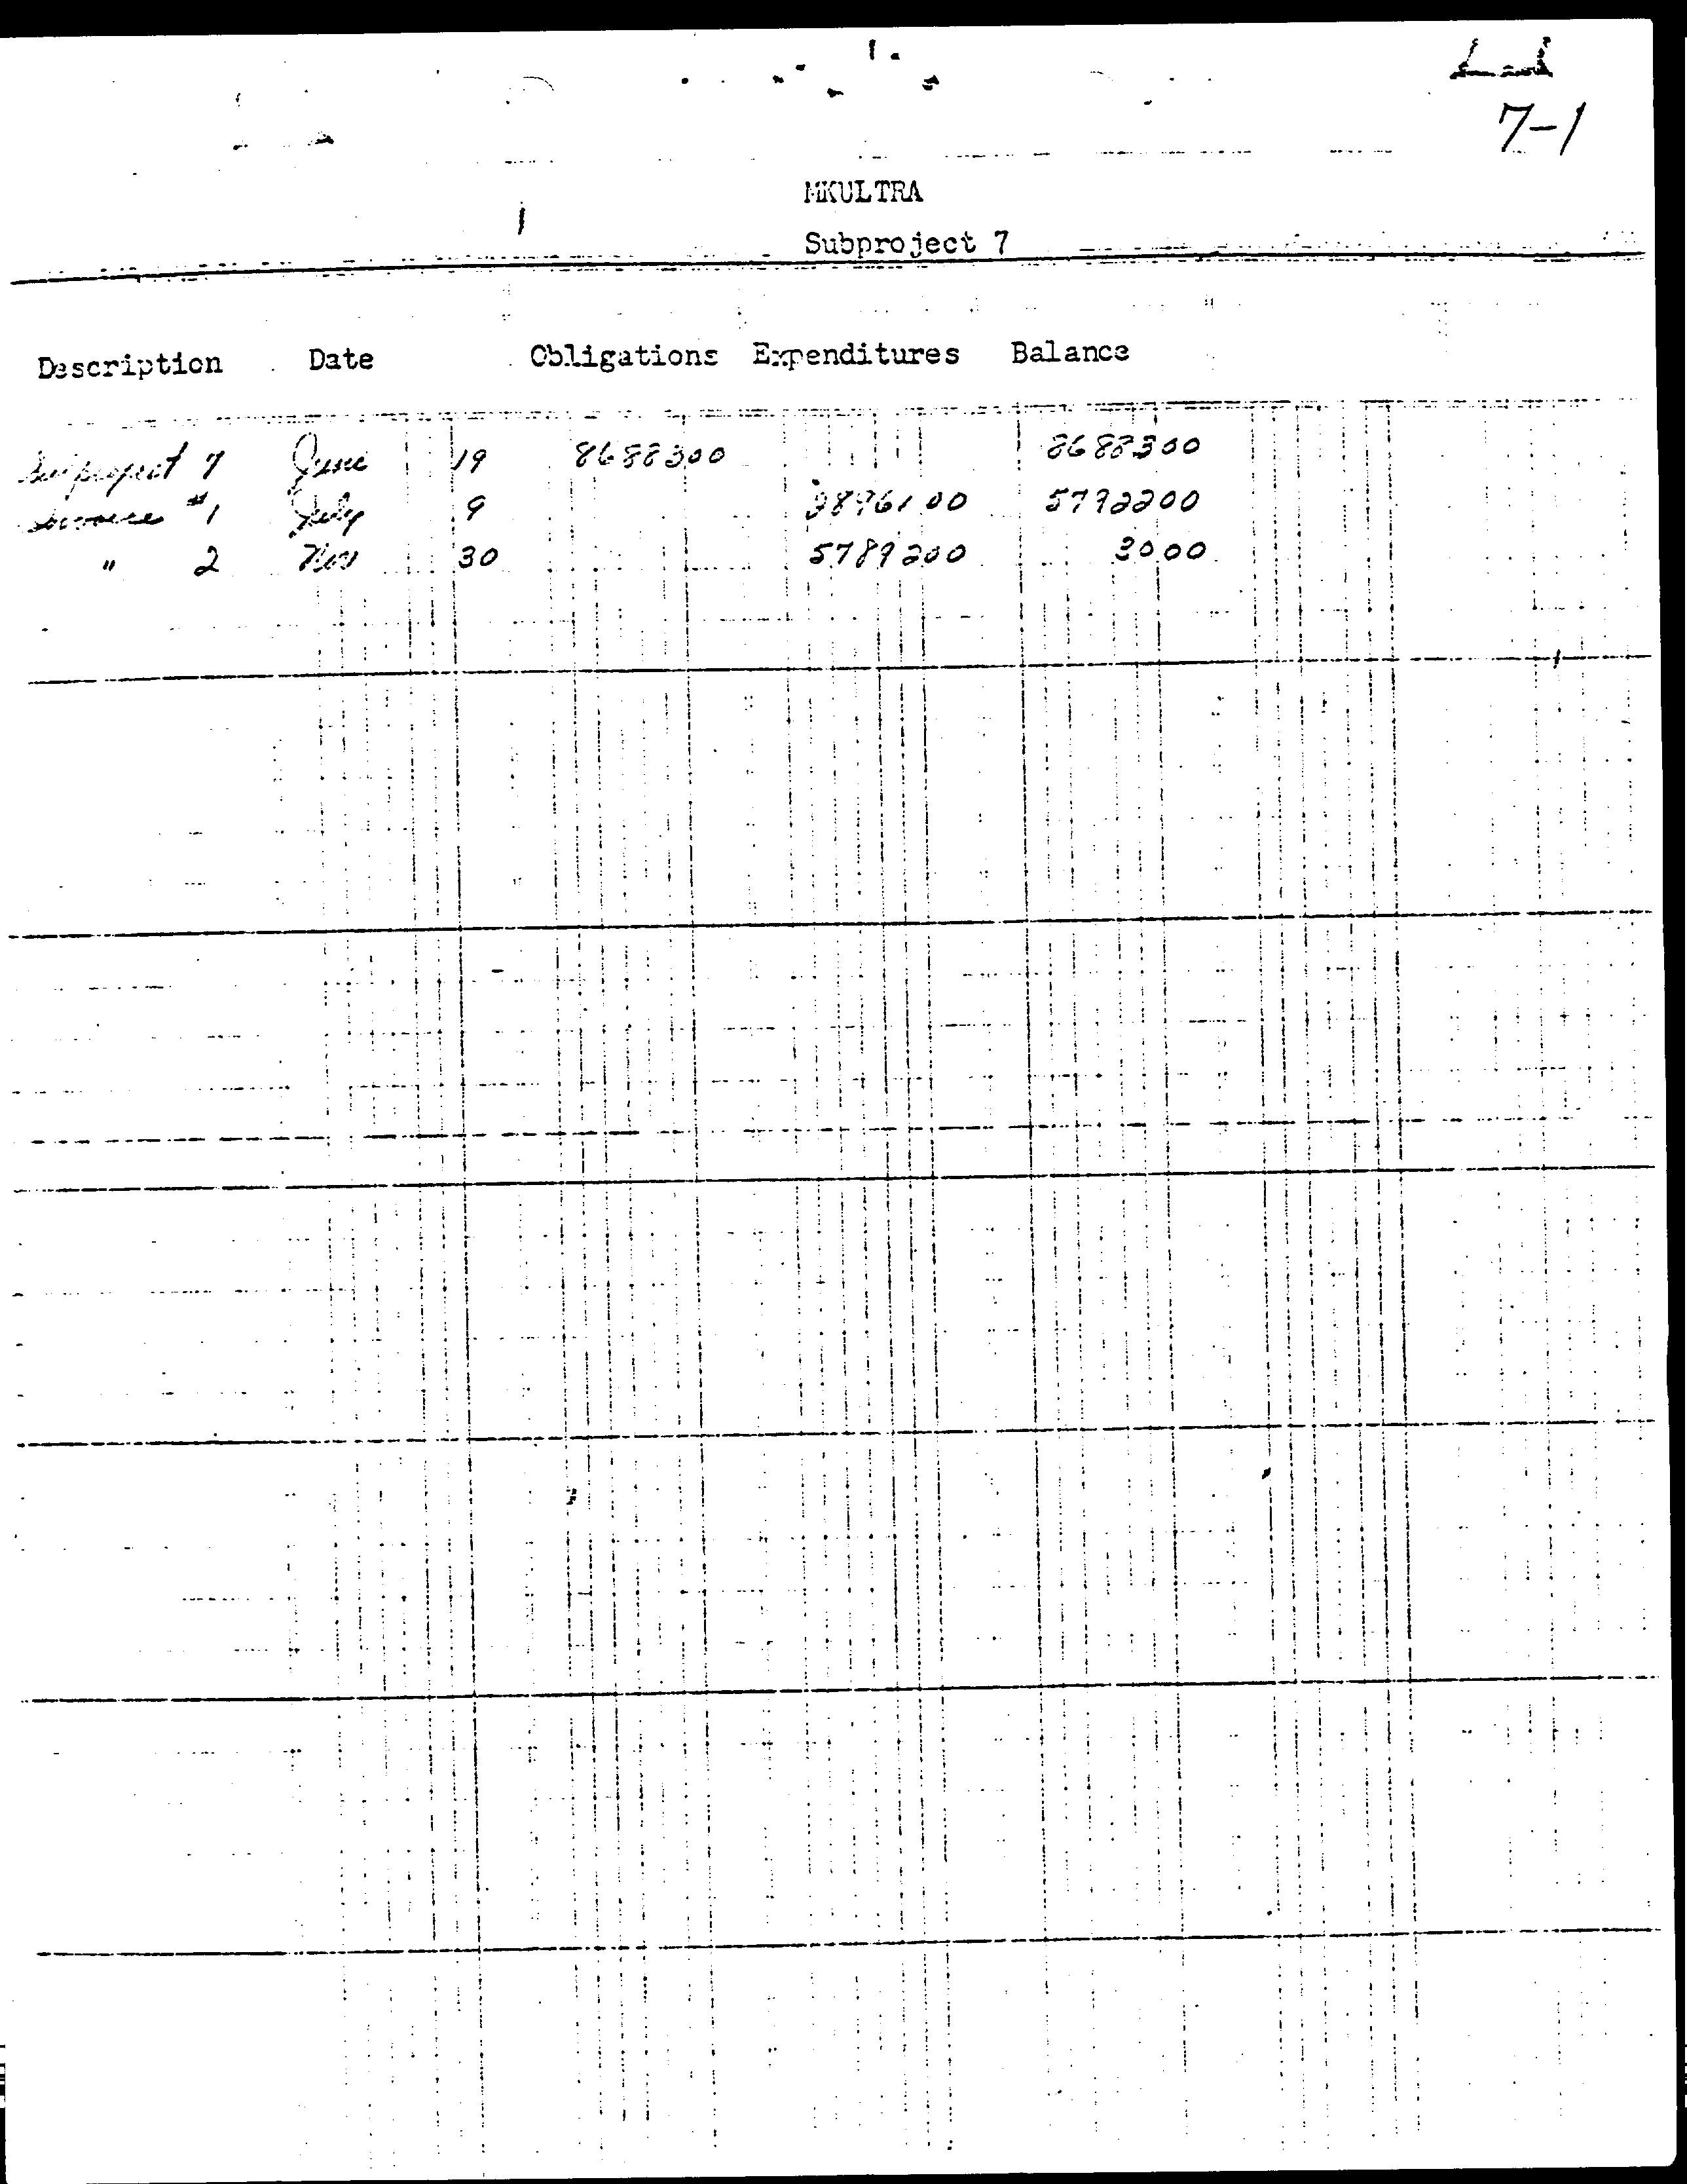 7-1
MKULTRA
Subproject 7
Description Date Obligations Expenditures Balance
Subproject 7 June 19 8688300 8688300
Invoice #1 July 9 2896100 5792200
" 2 Nov 30 5789200 3000